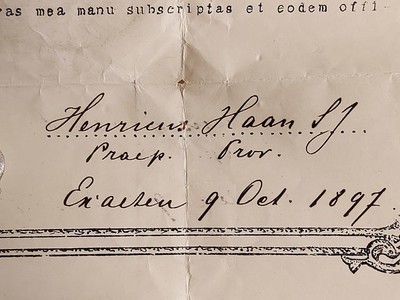 as mea manu subscriptas et eodem offi-
Henricus Haan SJ
Praep. Prov.
Exaeten 9 Oct. 1897.